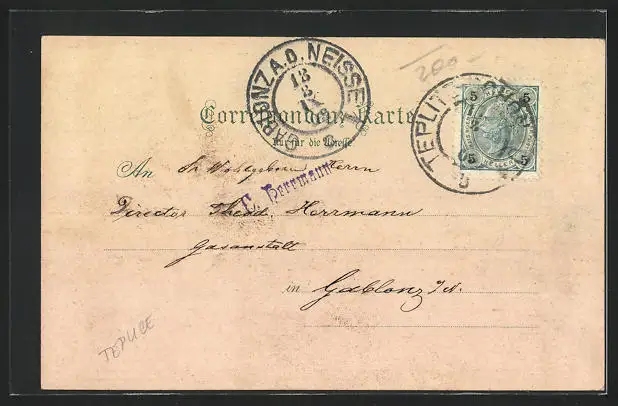 200-
GABLONZ A.D. NEISSE
13
3
TEPLITZ
5 5
5 5
Correspondenz-Karte
Nur für die Adresse
An Sr Wohlgeboren Herrn
C. Herrmann
Director Theod. Herrmann
Gasanstalt
in Gablonz a/N.
TEPLICE